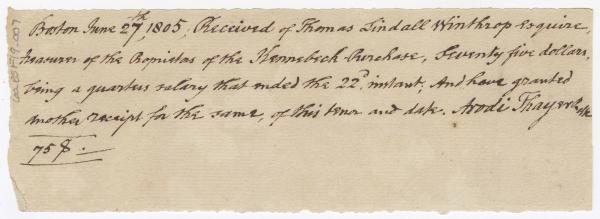 Boston June 27th 1805. Received of Thomas Lindall Winthrop Esquire,
treasurer of the Proprietors of the Kennebeck Purchase, Seventy five dollars,
being a quarters salary that ended the 22d instant; And have granted
another receipt for the same, of this tenor and date. Arodi Thayer
75$.